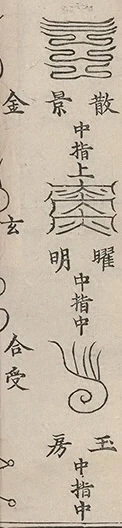 散景
中指上
曜明
中指中
玉房
中指中
金
玄
合受